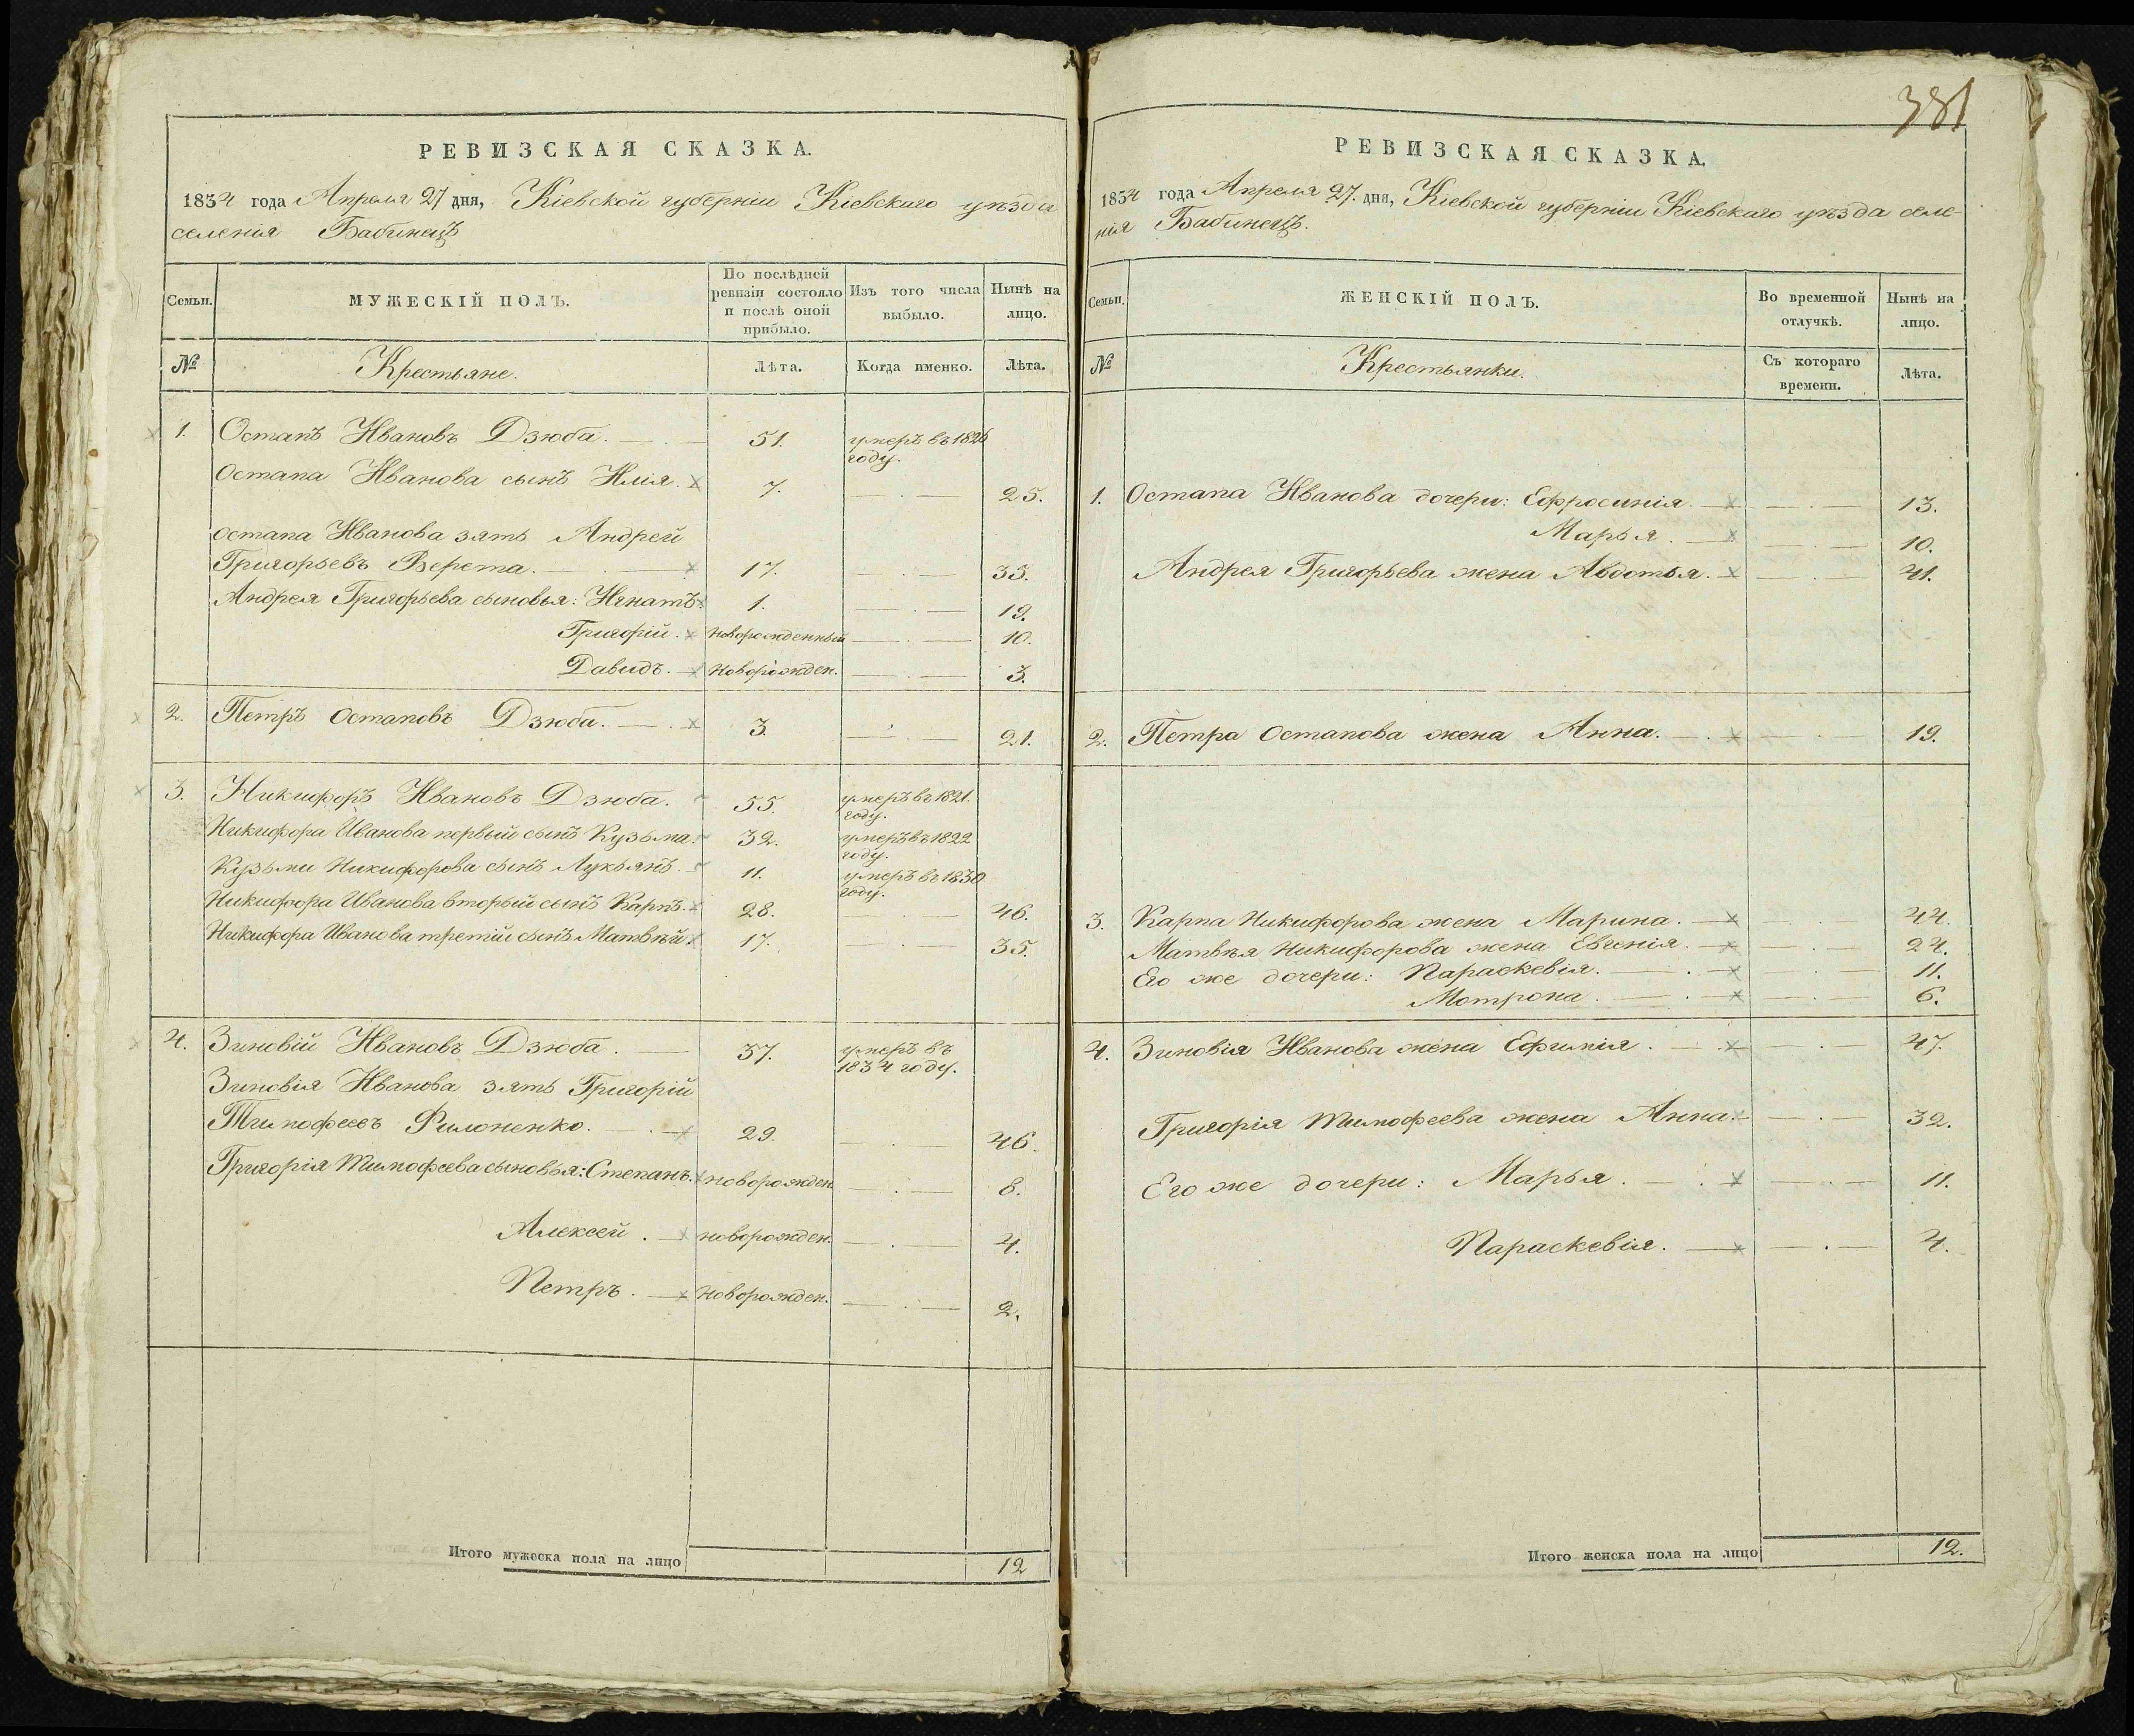 РЕВИЗСКАЯ СКАЗКА.
1834 года Апреля 27 дня, Кіевской губерніи Кіевскаго уѣзда
селенія Бабинецъ
Семьи.
МУЖЕСКІЙ ПОЛЪ.
По послѣдней
ревизіи состояло
и послѣ оной
прибыло.
Изъ того числа
выбыло.
Нынѣ на
лицо.
№
Крестьяне.
Лѣта.
Когда именно.
Лѣта.
1. Остапъ Ивановъ Дзюба. 51. умеръ въ 1826
году.
Остапа Иванова сынъ Илія. 7. 25.
Остапа Иванова зять Андрей
Григорьевъ Верета. 17. 35.
Андрея Григорьева сыновья: Игнатъ 1. 19.
Григорій. новорожденный 10.
Давидъ. новорожден. 3.
2. Петръ Остаповъ Дзюба. 3. 21.
3. Никифоръ Ивановъ Дзюба. 55. умеръ въ 1821.
году.
Никифора Иванова первый сынъ Кузьма. 32. умеръ въ 1822
году.
Кузьми Никифорова сынъ Лукьянъ. 11. умеръ въ 1830
году.
Никифора Иванова вторый сынъ Карпъ. 28. 46.
Никифора Иванова третій сынъ Матвѣй. 17. 35.
4. Зиновій Ивановъ Дзюба. 37. умеръ въ
1834 году.
Зиновія Иванова зять Григорій
Тимофеевъ Филоненко. 29. 46.
Григорія Тимофеева сыновья: Степанъ. новорожден. 8.
Алексей. новорожден. 4.
Петръ. новорожден. 2.
Итого мужеска пола на лицо 12
381
РЕВИЗСКАЯ СКАЗКА.
1834 года Апреля 27. дня, Кіевской губерніи Кіевскаго уѣзда селе-
нія Бабинецъ.
Семьи.
ЖЕНСКІЙ ПОЛЪ.
Во временной
отлучкѣ.
Нынѣ на
лицо.
№
Крестьянки.
Съ котораго
времени.
Лѣта.
1. Остапа Иванова дочери: Ефросинія. 13.
Марья. 10.
Андрея Григорьева жена Авдотья. 41.
2. Петра Остапова жена Анна. 19.
3. Карпа Никифорова жена Марина. 44.
Матвѣя Никифорова жена Евгенія. 24.
Его же дочери: Параскевія. 11.
Мотрона. 6.
4. Зиновія Иванова жена Ефимія. 47.
Григорія Тимофеева жена Анна. 32.
Его же дочери: Марья. 11.
Параскевія. 4.
Итого женска пола на лицо 12.